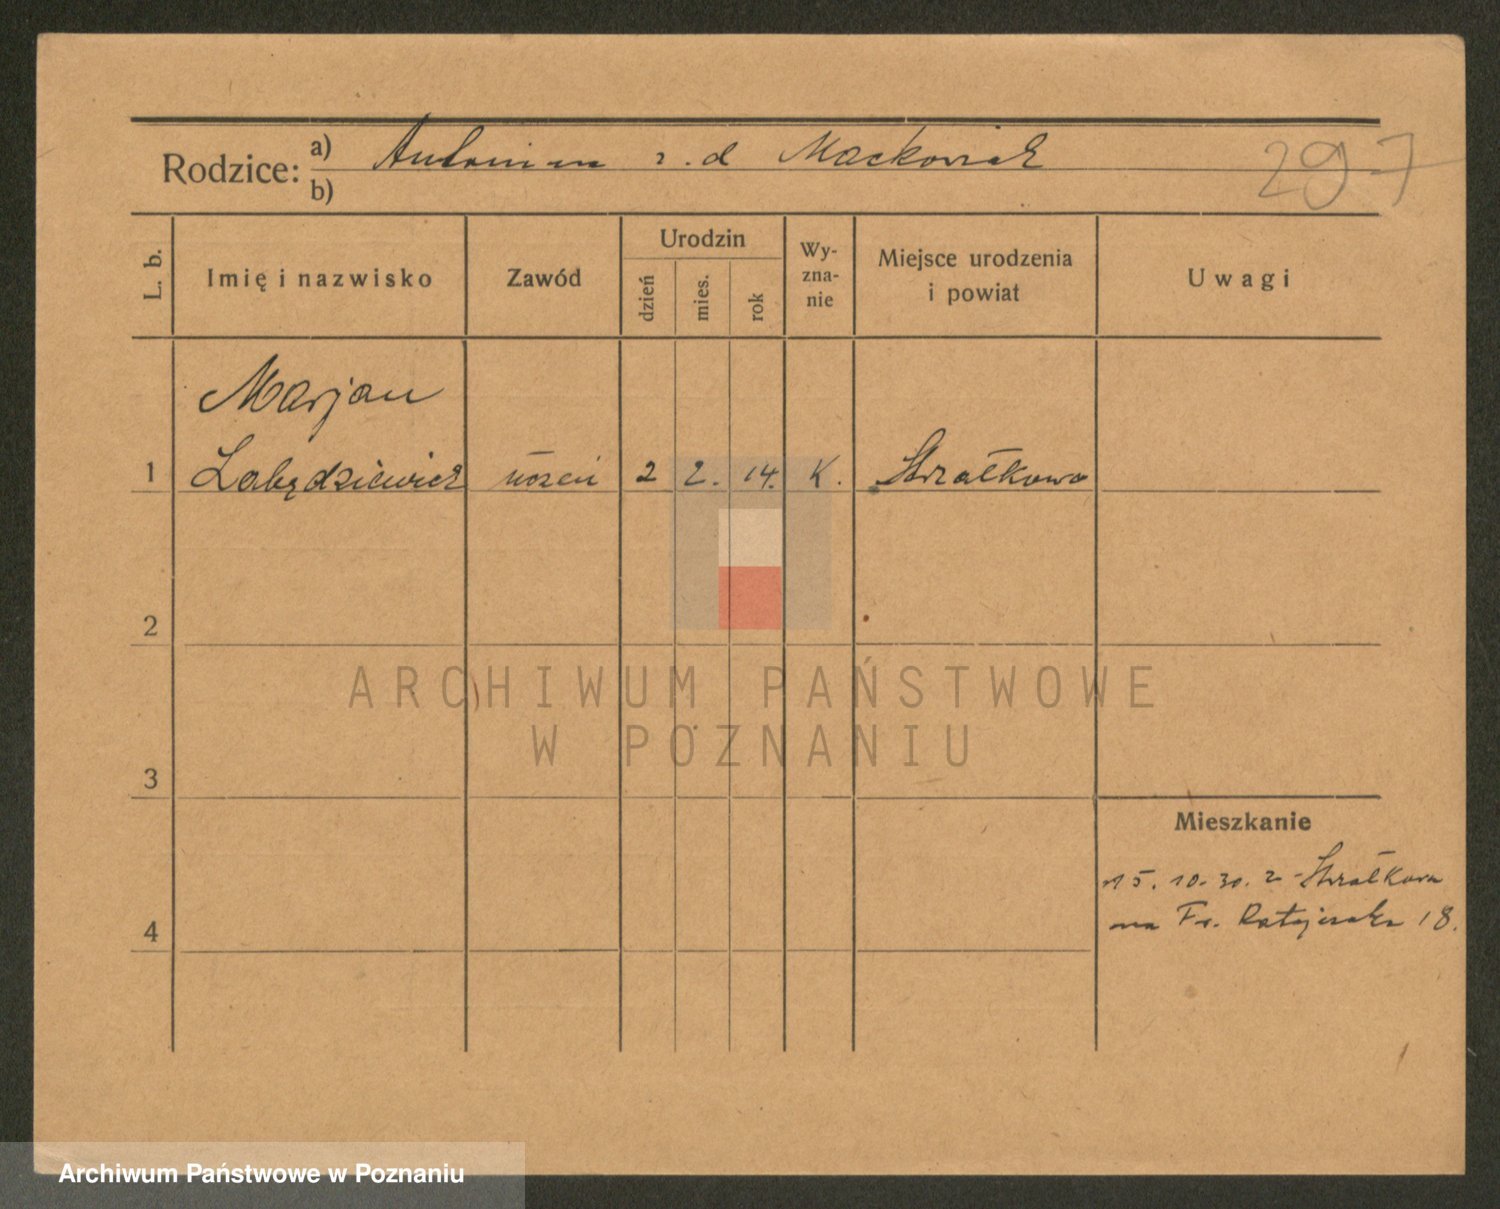 Rodzice: a) Antonina z. d Maćkowiak
b)
297
L. b.
Imię i nazwisko
Zawód
Urodzin
dzień
mies.
rok
Wy-
zna-
nie
Miejsce urodzenia
i powiat
Uwagi
Marjan
1 Łabędziewicz uczeń 2 2. 14. K. Strzałkowo
2
3
4
Mieszkanie
15. 10. 30. z Strzałkowa
na Fr. Ratajczaka 18.
ARCHIWUM PAŃSTWOWE
W POZNANIU
Archiwum Państwowe w Poznaniu